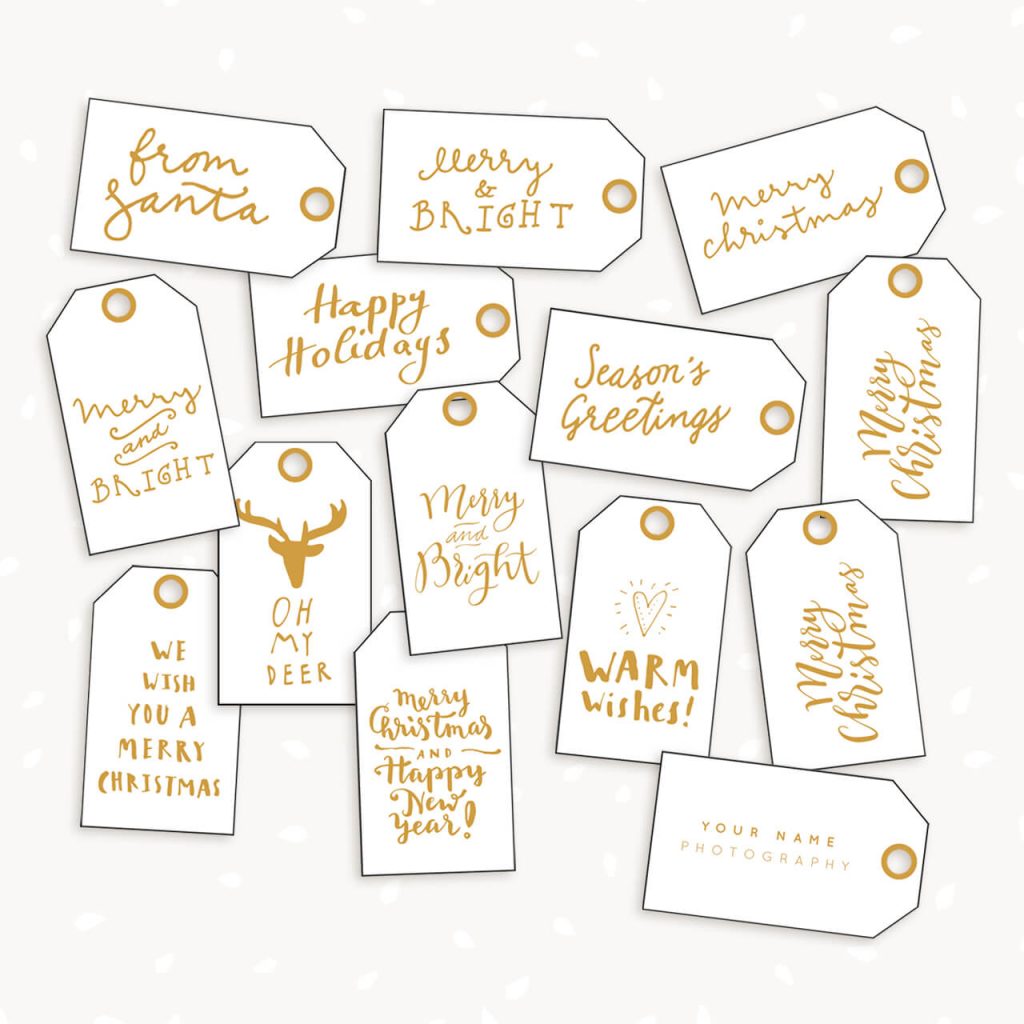 from
Santa
Merry
&
BRIGHT
Merry
christmas
Happy
Holidays
Merry
and
BRIGHT
Season's
Greetings
Merry
Christmas
OH
MY
DEER
Merry
and
Bright
WE
WISH
YOU A
MERRY
CHRISTMAS
Merry
Christmas
AND
Happy
New
Year!
WARM
Wishes!
Merry
Christmas
YOUR NAME
PHOTOGRAPHY